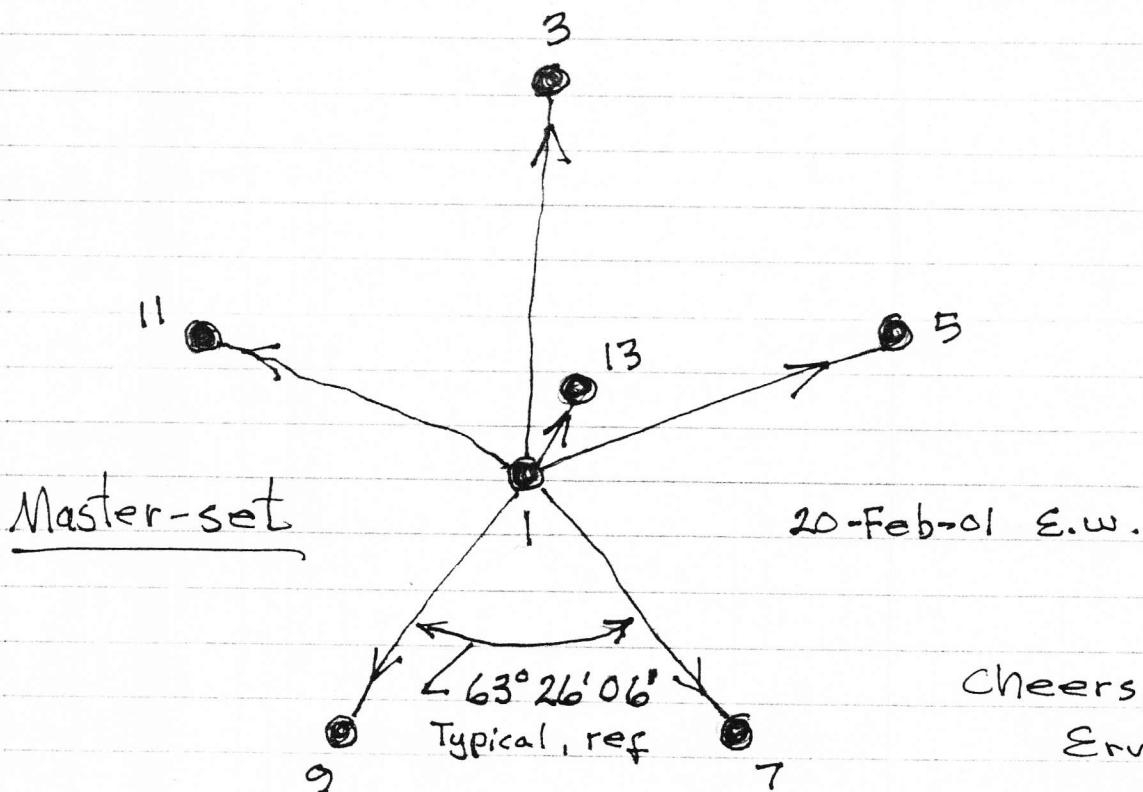 3
11
5
13
Master-set
1
20-Feb-01 E.W.
63° 26' 06"
Typical, ref
Cheers
Erv
9
7